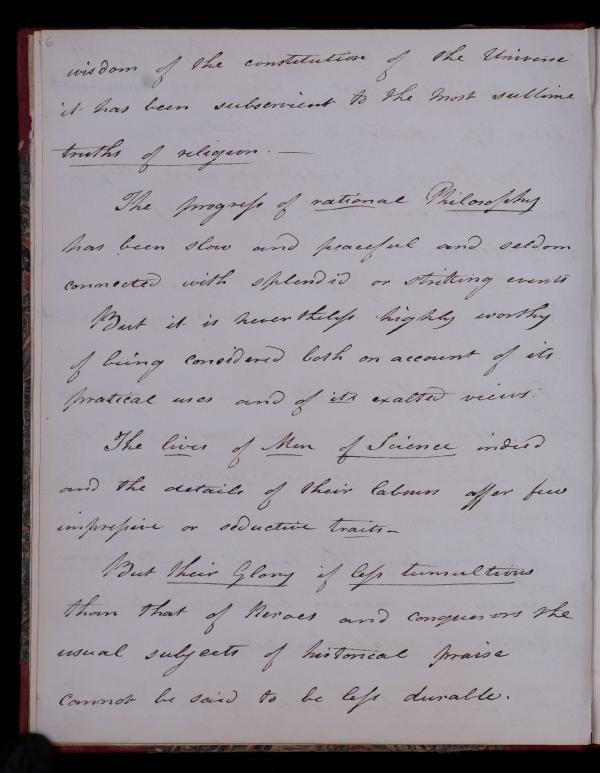 6
wisdom of the constitution of the Universe
it has been subservient to the most sublime
truths of religion. —
The progress of rational Philosophy
has been slow and peaceful and seldom
connected with splendid or striking events
But it is nevertheless highly worthy
of being considered both on account of its
pratical uses and of its exalted views.
The lives of Men of Science indeed
and the details of their labours offer few
impressive or seductive traits –
But their Glory if less tumultious
than that of Heroes and conquerors the
usual subjects of historical praise
cannot be said to be less durable.